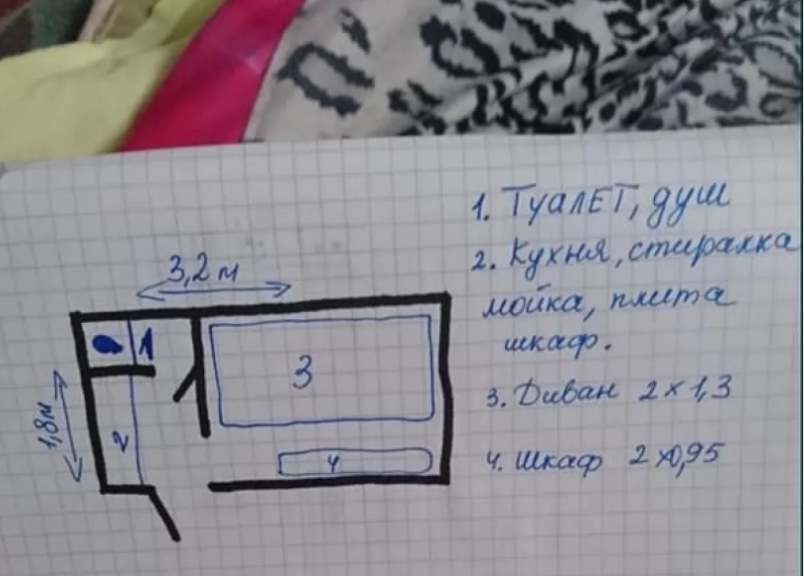 1. Туалет, душ
2. Кухня, стиралка
мойка, плита
шкаф.
3. Диван 2×1,3
4. Шкаф 2×0,95
3,2 м
1
3
1,8м
2
4